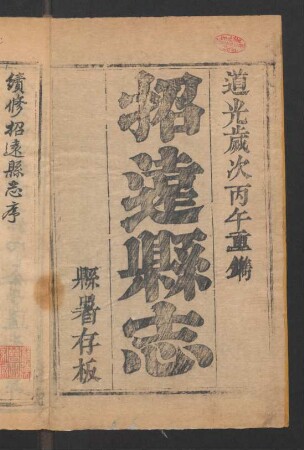 道光歲次丙午重鐫
招遠縣志
縣署存板
續修招遠縣志序